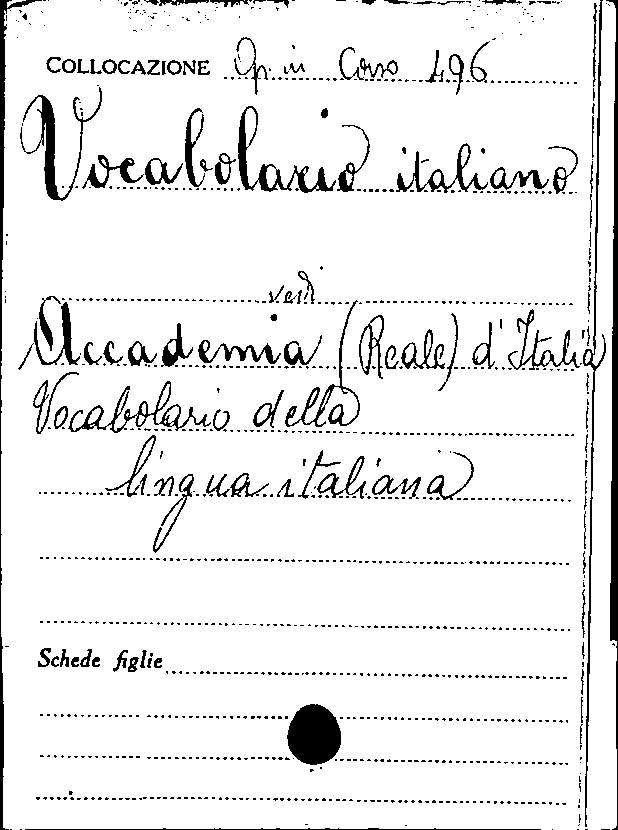 COLLOCAZIONE Op. in Corso 496
Vocabolario italiano
vedi
Accademia (Reale) d'Italia
Vocabolario della
lingua italiana
Schede figlie